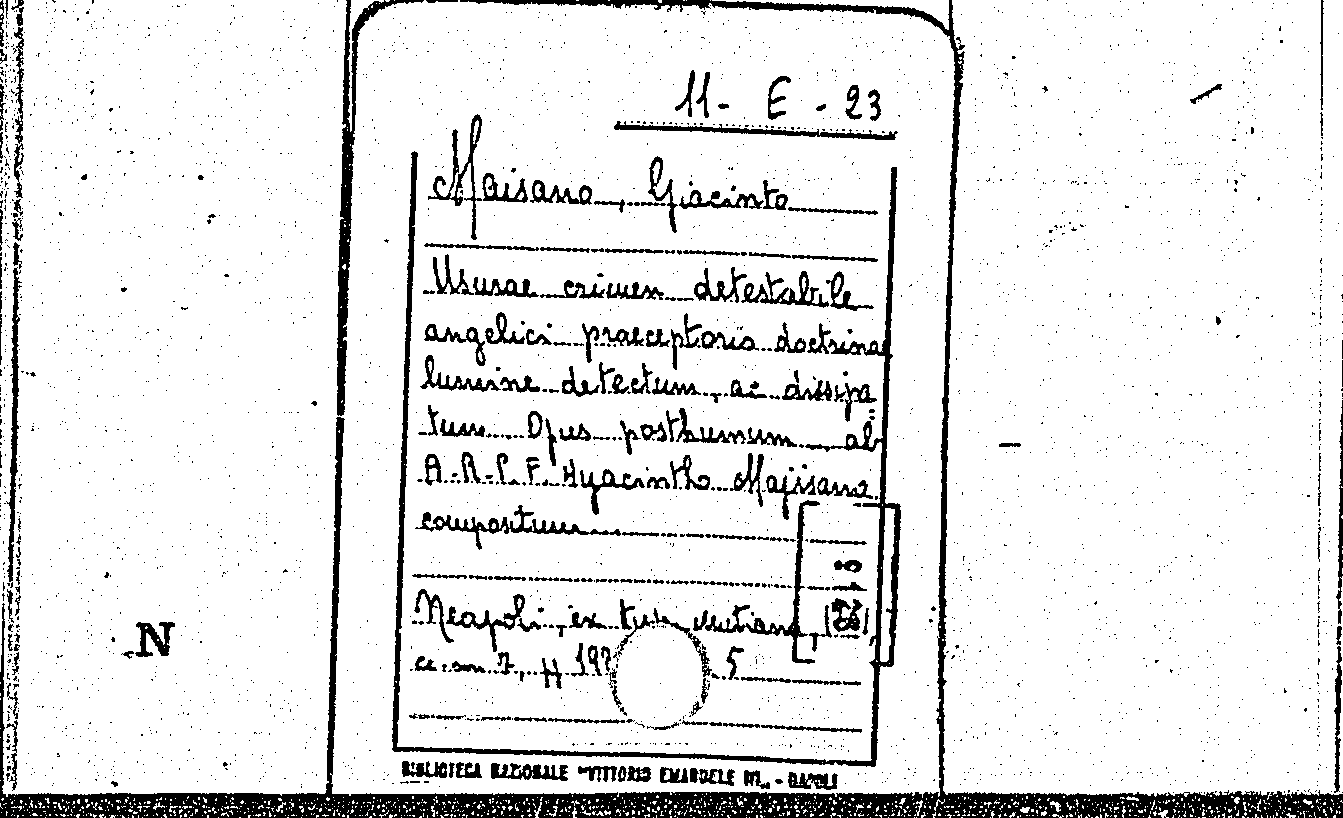 11 - E - 23
Maisano, Giacinto
Usurae crimen detestabile
angelici praeceptoris doctrinae
lumine detectum, ac dissipa
tum Opus posthumum ab
A.R.P.F. Hyacintho Majisano
compositum
Neapoli, ex
cc. sm. 7, 5
N
BIBLIOTECA NAZIONALE "VITTORIO EMANUELE III" - NAPOLI